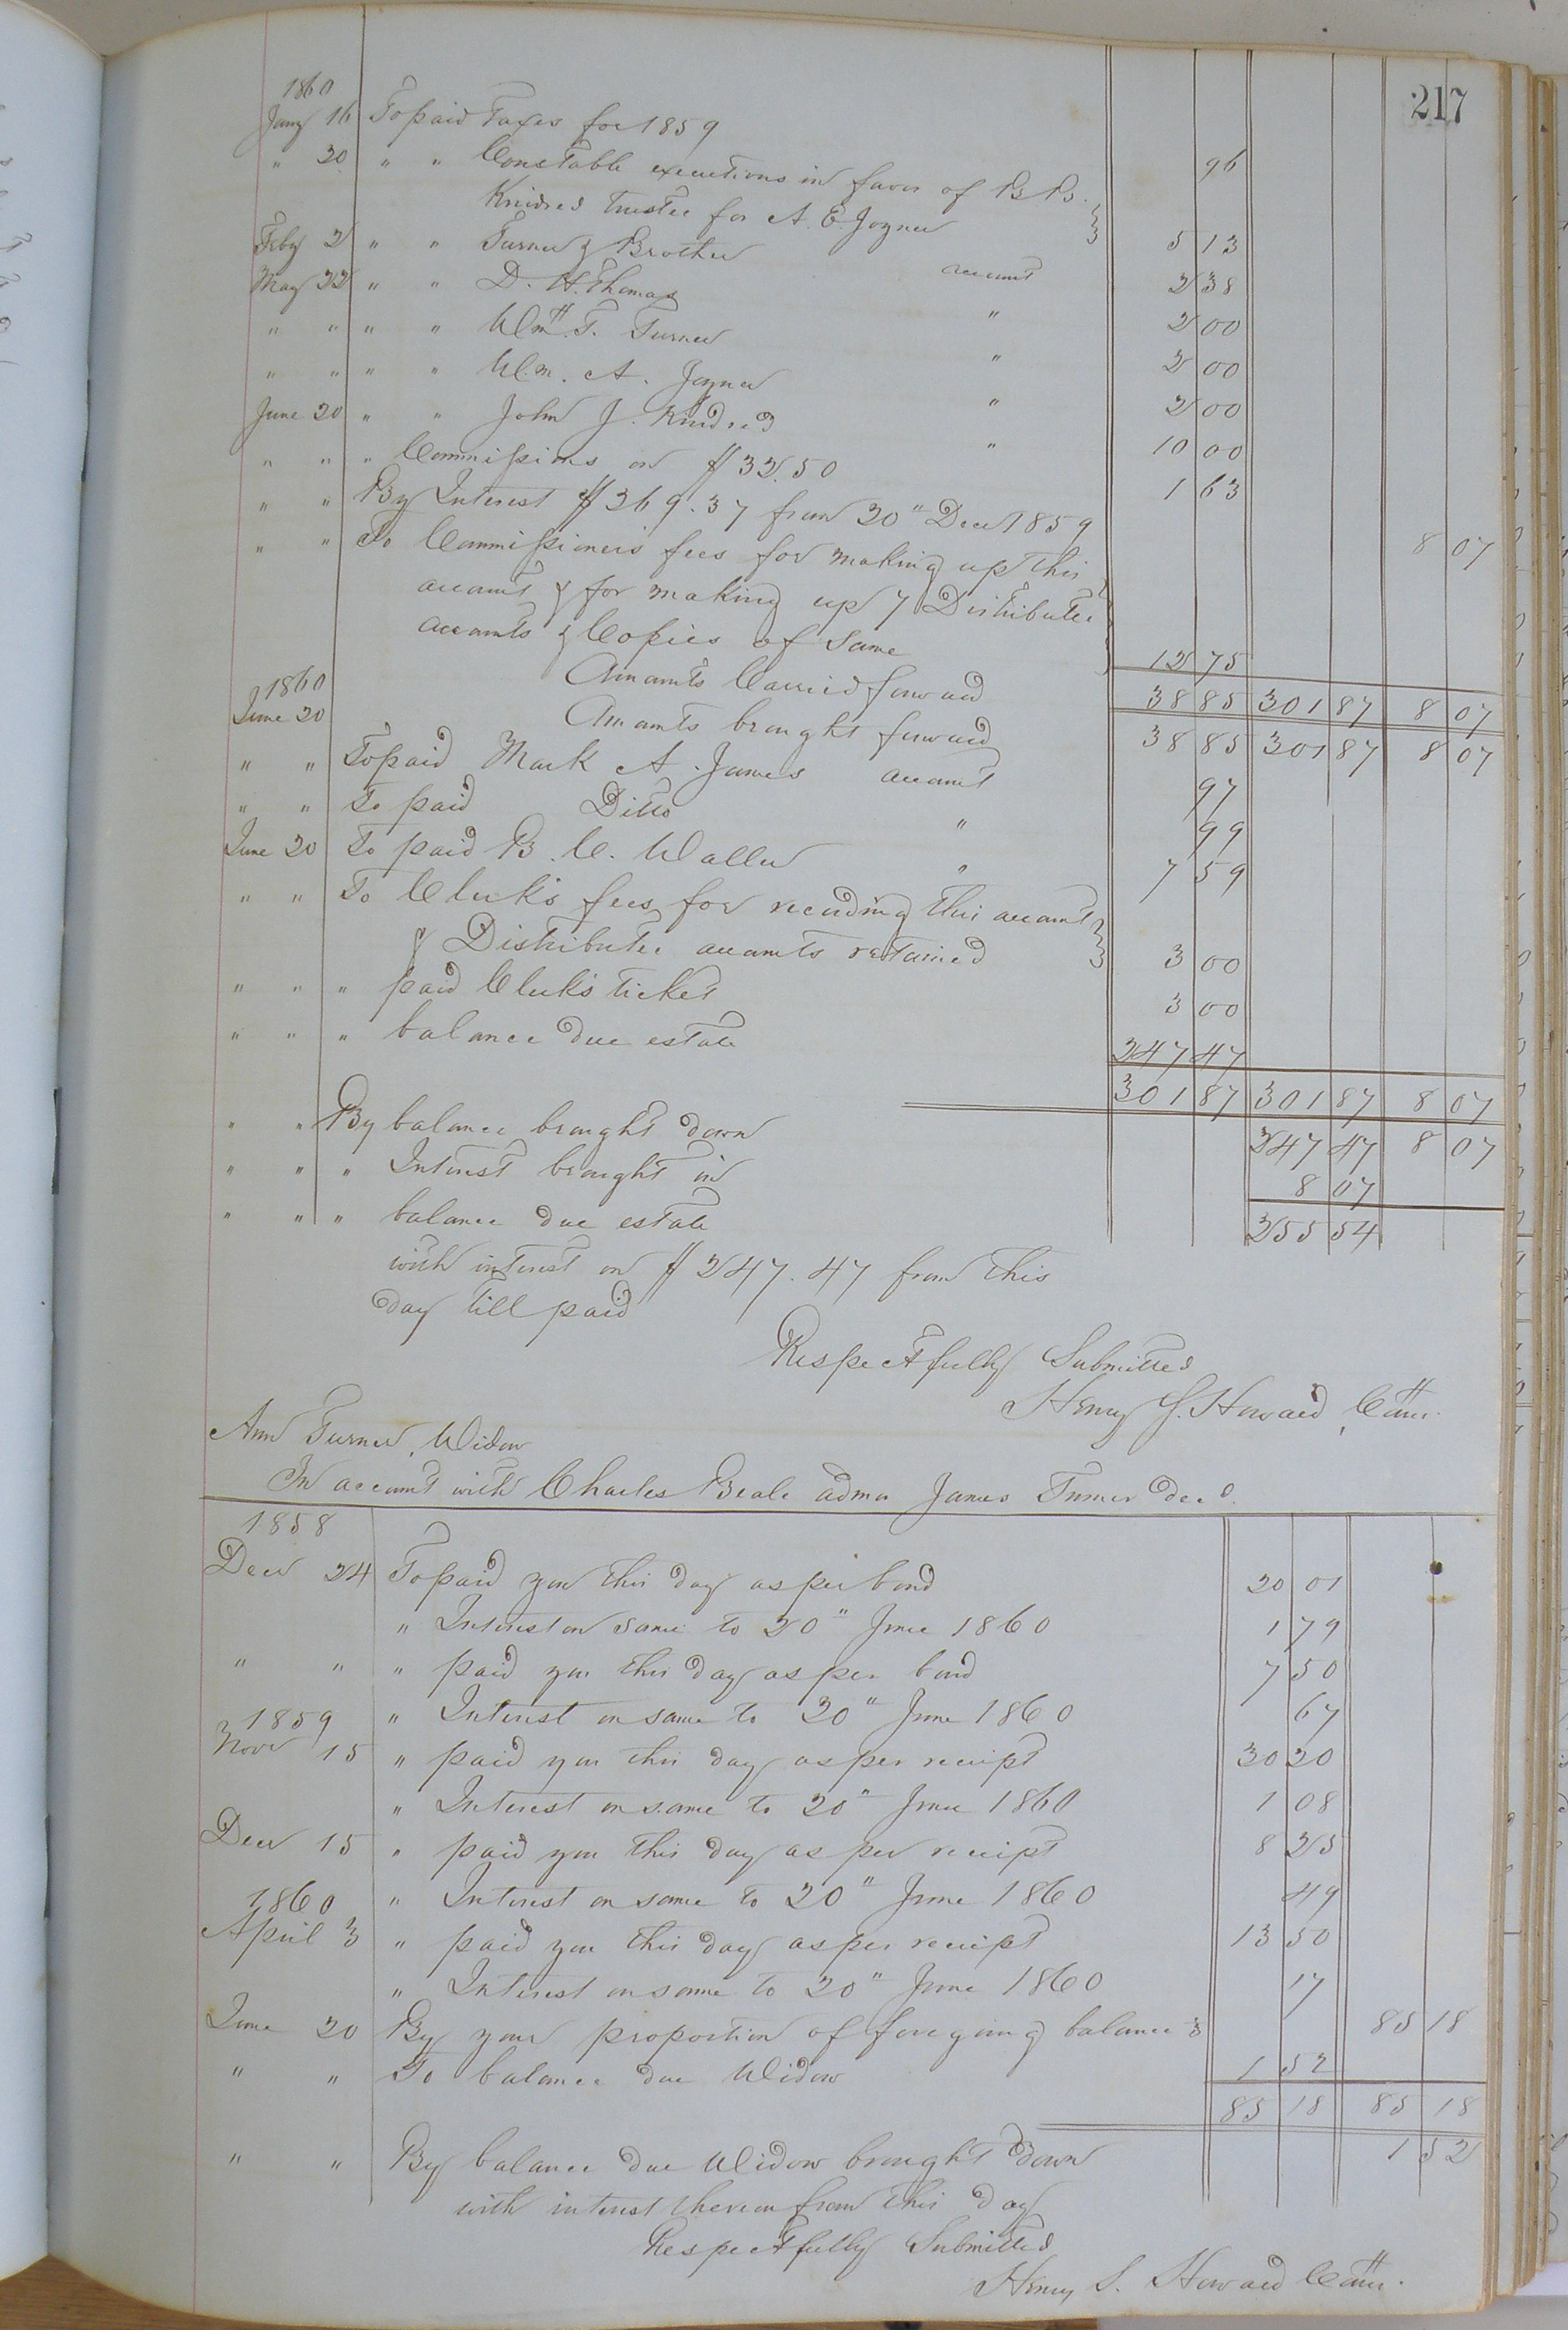 217
1860
Jany 16 To paid Taxes for 1859 96
" 20 " " Constable executions in favor of B. B.
Knidred trustee for A. E. Joyner 5 13
Feby 2 " " Turner & Brother account 2 38
May 22 " " D. H. Thomas " 2 00
" " " " Wm. T. Turner " 2 00
" " " " Wm. A. Joyner " 2 00
June 20 " " John J. Kindred " 10 00
" " " Commissions on $32.50 1 63
" " By Interest $269.37 from 20" Decr 1859 8 07
" " To Commissioner's fees for making up this
account & for making up 7 Distributee
accounts & Copies of Same 12 75
Amounts Carried forward 38 85 301 87 8 07
1860
June 20 Amounts brought forward 38 85 301 87 8 07
" " To paid Mark A. James account 97
" " To paid Ditto " 99
June 20 To paid B. C. Waller " 7 59
" " To Clerk's fees for recording this account
& Distributee accounts retained 3 00
" " " paid Clerk's ticket 3 00
" " " balance due estate 247 47
301 87 301 87 8 07
" " By balance brought down 247 47 8 07
" " " Interest brought in 8 07
" " " balance due estate 255 54
with interest on $247.47 from this
day till paid
Respectfully Submitted
Henry S. Howard, Comr.
Ann Turner, Widow
In account with Charles Beale admr James Turner decd.
1858
Decr 24 To paid you this day as per bond 20 01
" Interest on same to 20" June 1860 1 79
" " " paid you this day as per bond 7 50
" Interest on same to 20" June 1860 67
1859
Novr 15 " paid you this day as per receipt 30 20
" Interest on same to 20" June 1860 1 08
Decr 15 " paid you this day as per receipt 8 25
" Interest on same to 20" June 1860 49
1860
April 3 " paid you this day as per receipt 13 50
" Interest on same to 20" June 1860 17
June 20 By your proportion of foregoing balance 85 18
" " To balance due Widow 1 52
85 18 85 18
" " By balance due Widow brought down 1 52
with interest thereon from this day
Respectfully Submitted
Henry S. Howard Comr.